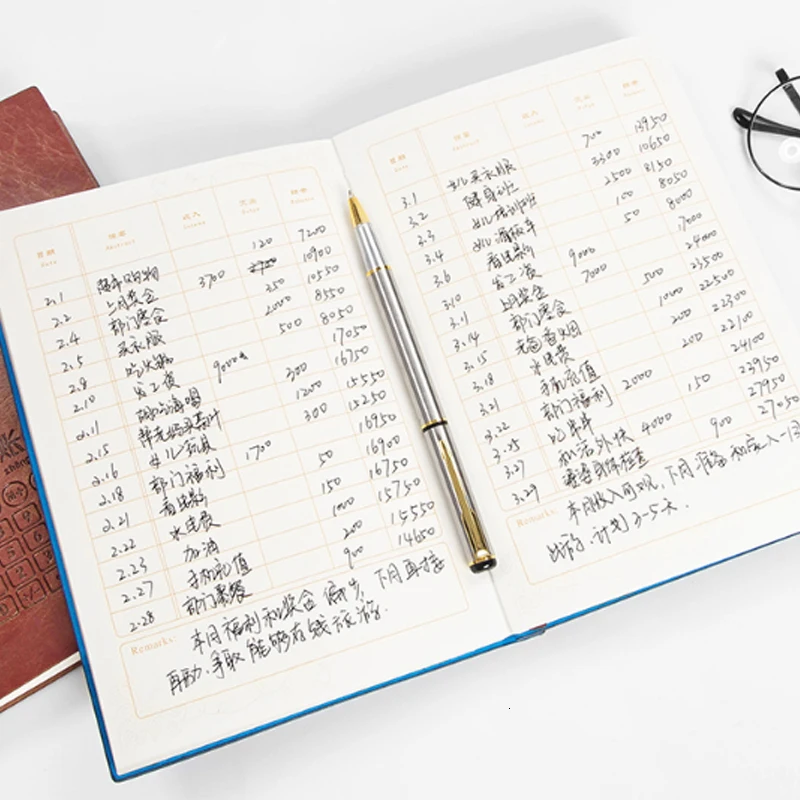 日期 摘要 收入 支出 结余
Date Abstract Income Balance
2.1 120 7200
2.2 上月奖金 3700 10900
2.4 部门聚会 350 10550
2.5 买衣服 2000 8550
2.8 500 8050
2.10 发工资 9000 17050
2.11 300 16750
2.15 1200 15550
2.16 女儿玩具 300 15250
2.18 部门福利 1700 16950
2.21 50 16900
2.22 水电费 150 16750
2.23 加油 1000 15750
2.27 手机充值 200 15550
2.28 部门聚餐 900 14650
Remarks:
本月福利和奖金偏少,下月再接
再励,争取能够有钱旅游.
日期 摘要 收入 支出 结余
Date Abstract
3.1 女儿买衣服 700 13950
3.2 健身班 3300 10650
3.3 女儿培训班 2500 8150
3.4 100 8050
3.6 50 8000
3.10 发工资 9000 17000
3.11 上月奖金 7000 24000
3.14 部门聚会 500 23500
3.15 1000 22500
3.18 水电费 200 22300
3.21 手机充值 200 22100
3.22 部门福利 2000 24100
3.25 150 23950
3.27 私活外快 4000 27950
3.29 900 27050
Remarks:
本月收入可观,下月准备和家人一起
出游,计划3-5天.